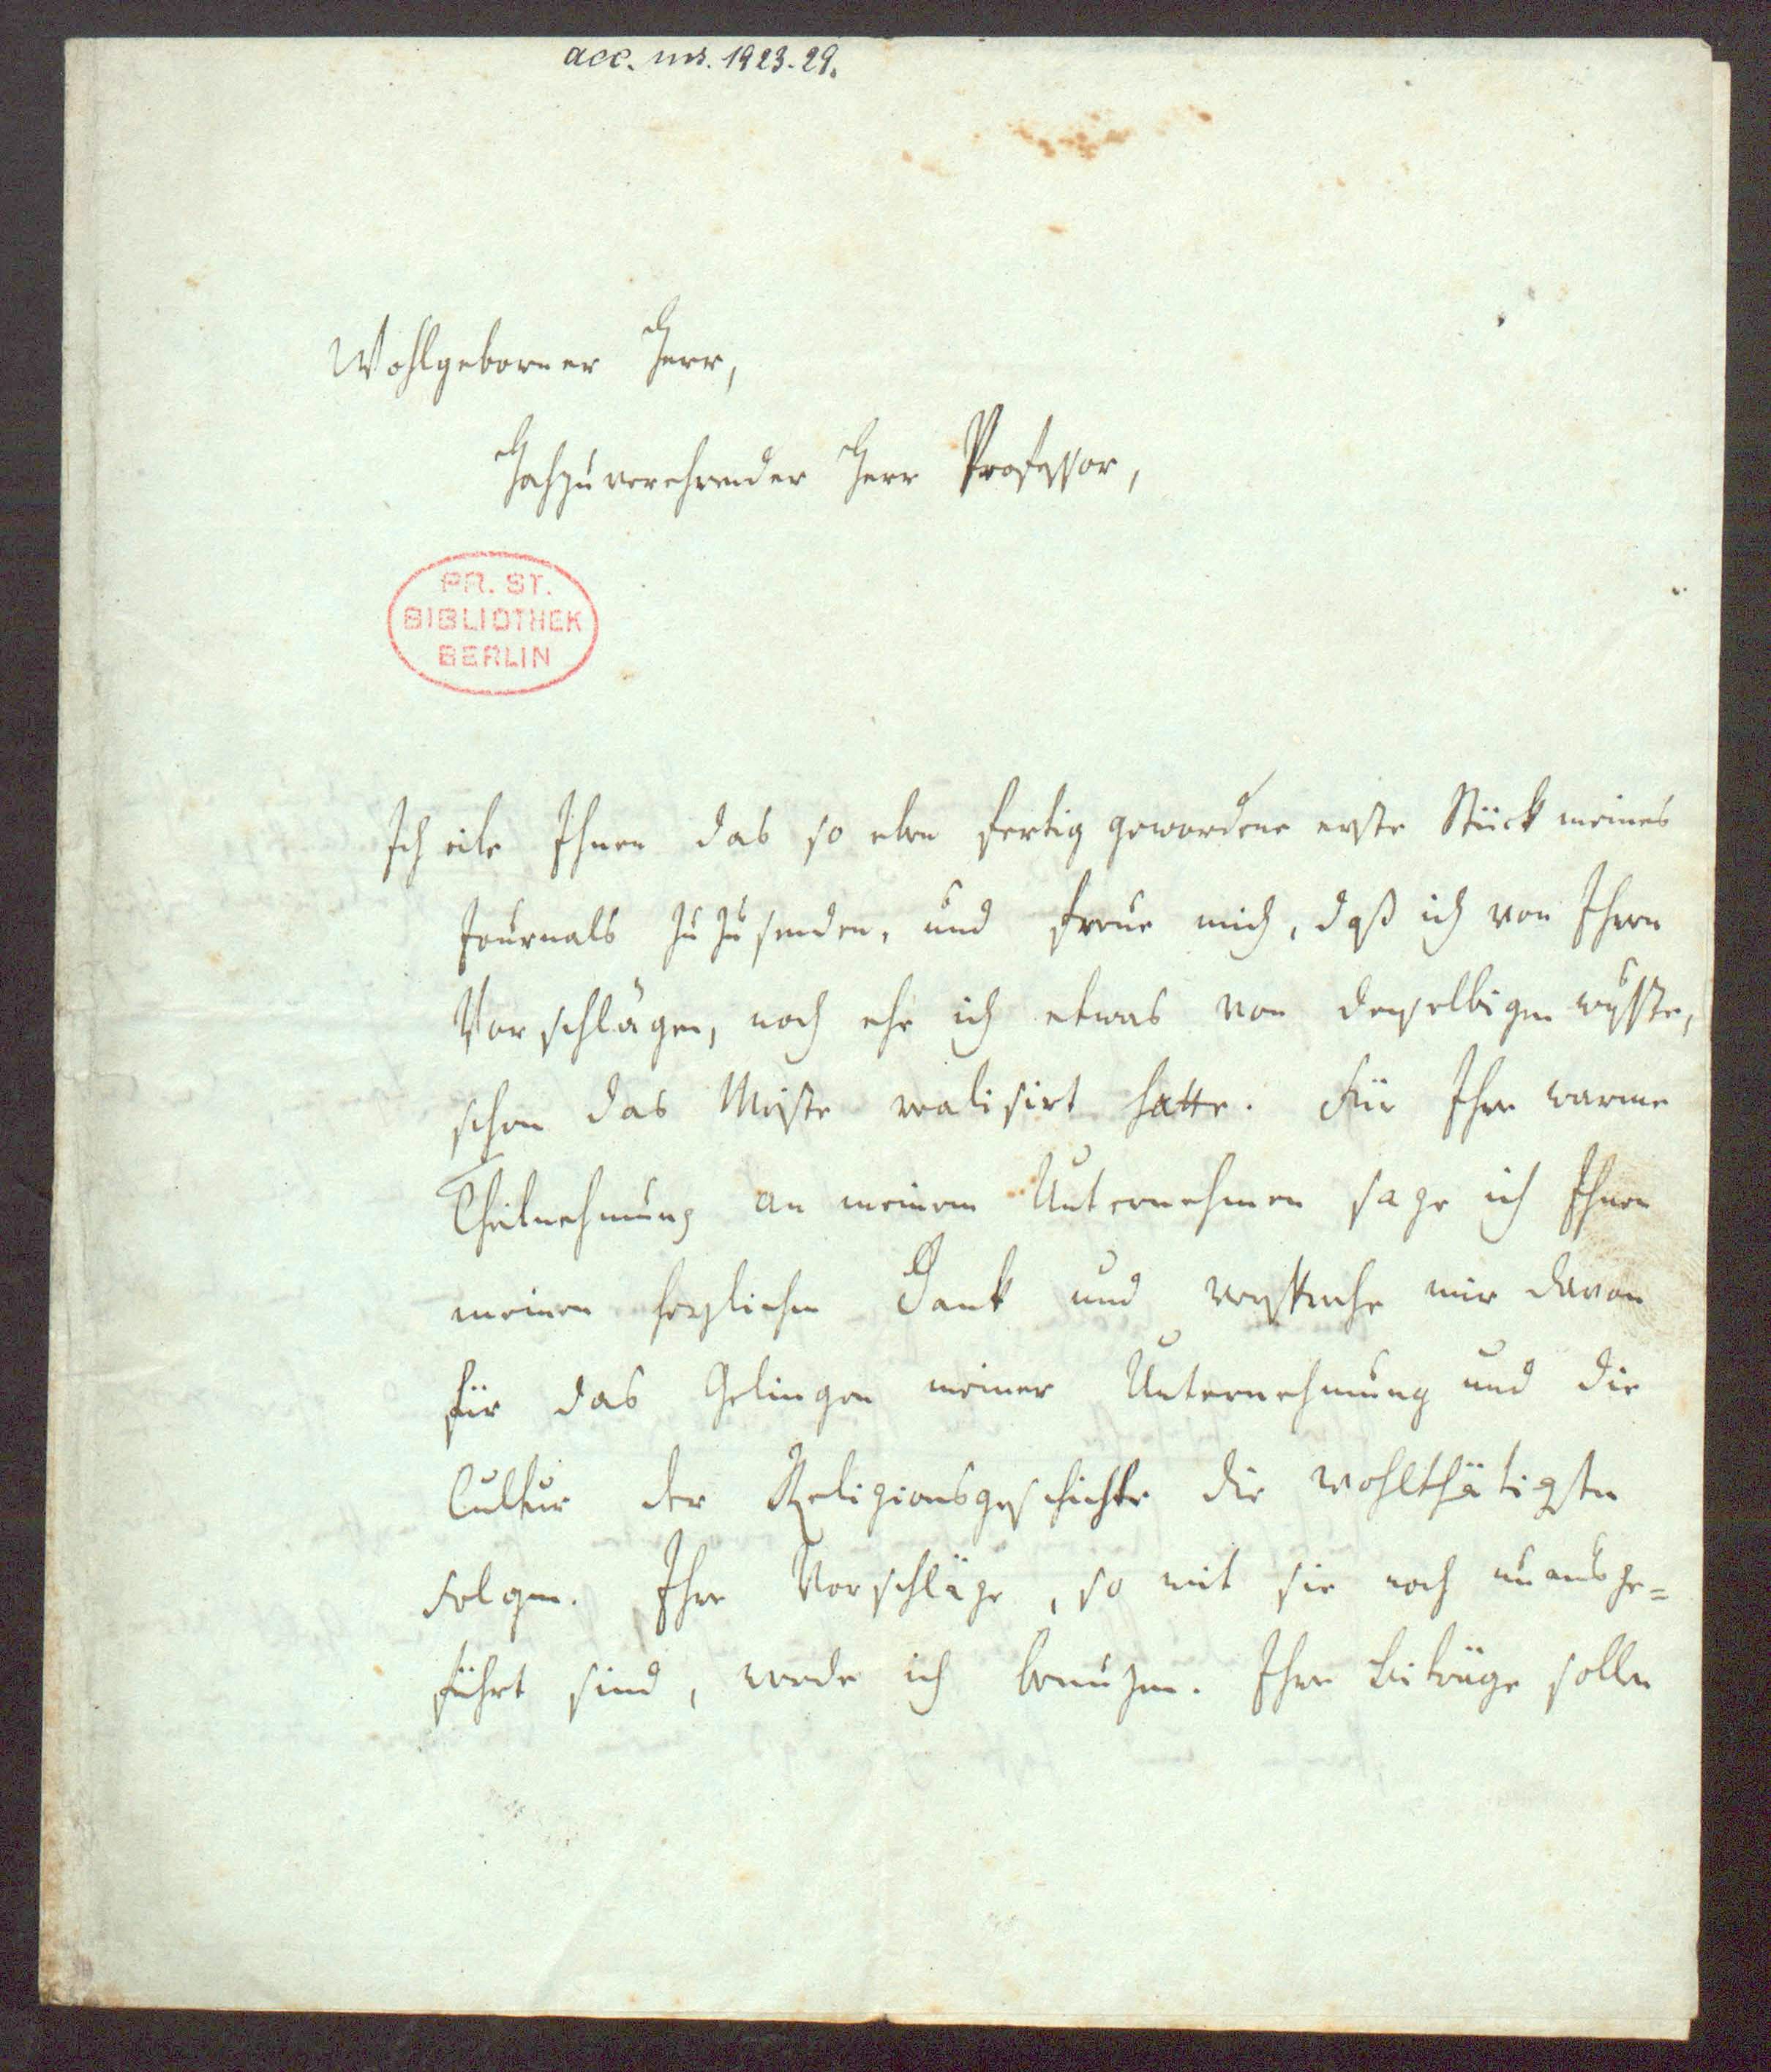 acc. ms. 1923. 29.
Wohlgeborner Herr,
Hochzuverehrender Herr Professor,
PR. ST.
BIBLIOTHEK
BERLIN
Ich eile Ihnen das so eben fertig gewordene erste Stück meines
Journals zuzusenden, und freue mich, daß ich von Ihren
Vorschlägen, noch ehe ich etwas von denselbigen wusste,
schon das Meiste realisirt hatte. Für Ihre warme
Theilnehmung an meinem Unternehmen sage ich Ihnen
meinen herzlichen Dank und verspreche mir davon
für das Gelingen meiner Unternehmung und die
Cultur der Religionsgeschichte die wohlthätigsten
Folgen. Ihre Vorschläge, so weit sie noch unausge=
führt sind, werde ich benuzen. Ihre Beiträge sollen